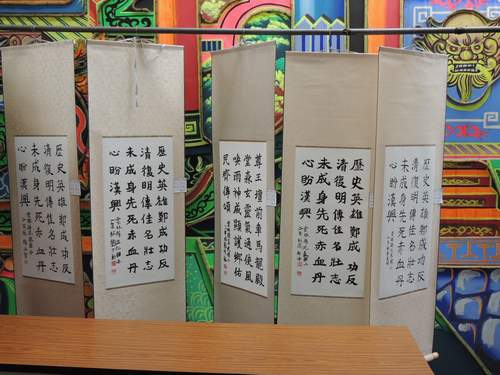 歷史英雄鄭成功反
清復明傳佳名壯志
未成身先死赤血丹
心盼漢興
歷史英雄鄭成功反
清復明傳佳名壯志
未成身先死赤血丹
心盼漢興
尊王壇前車馬龍殿
堂森玄靈氣通使風
喚雨神威顯護鄉佑
民齊傳頌
歷史英雄鄭成功反
清復明傳佳名壯志
未成身先死赤血丹
心盼漢興
歷史英雄鄭成功反
清復明傳佳名壯志
未成身先死赤血丹
心盼漢興